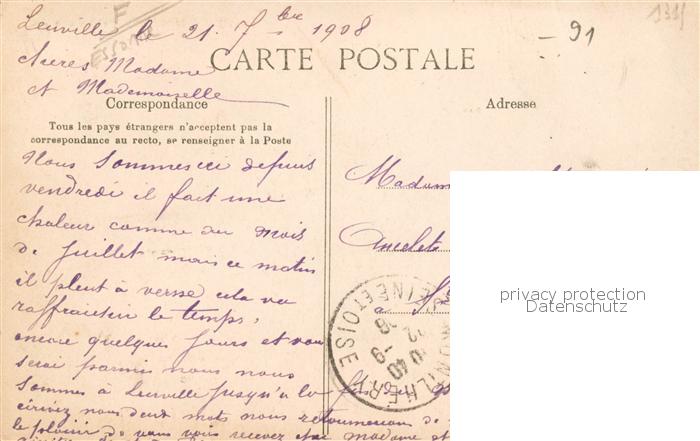 Leuville le 21. 7bre 1908
F
ESSONNE
- 91
Chères Madame
et Mademoiselle
CARTE POSTALE
Correspondance
Adresse
Tous les pays étrangers n'acceptent pas la
correspondance au recto, se renseigner à la Poste
Nous sommes ici depuis
vendredi il fait une
chaleur comme au mois
de juillet mais ce matin
il pleut à verse cela va
raffraichir le temps,
encore quelques jours et
serai parmis nous nous
sommes à Leuville jusqu'a la
écrivez nous deux mots nous retournerons
le plaisir de vous recevez madame et
Madame
à
MONTLHERY
SEINE ET OISE
privacy protection
Datenschutz